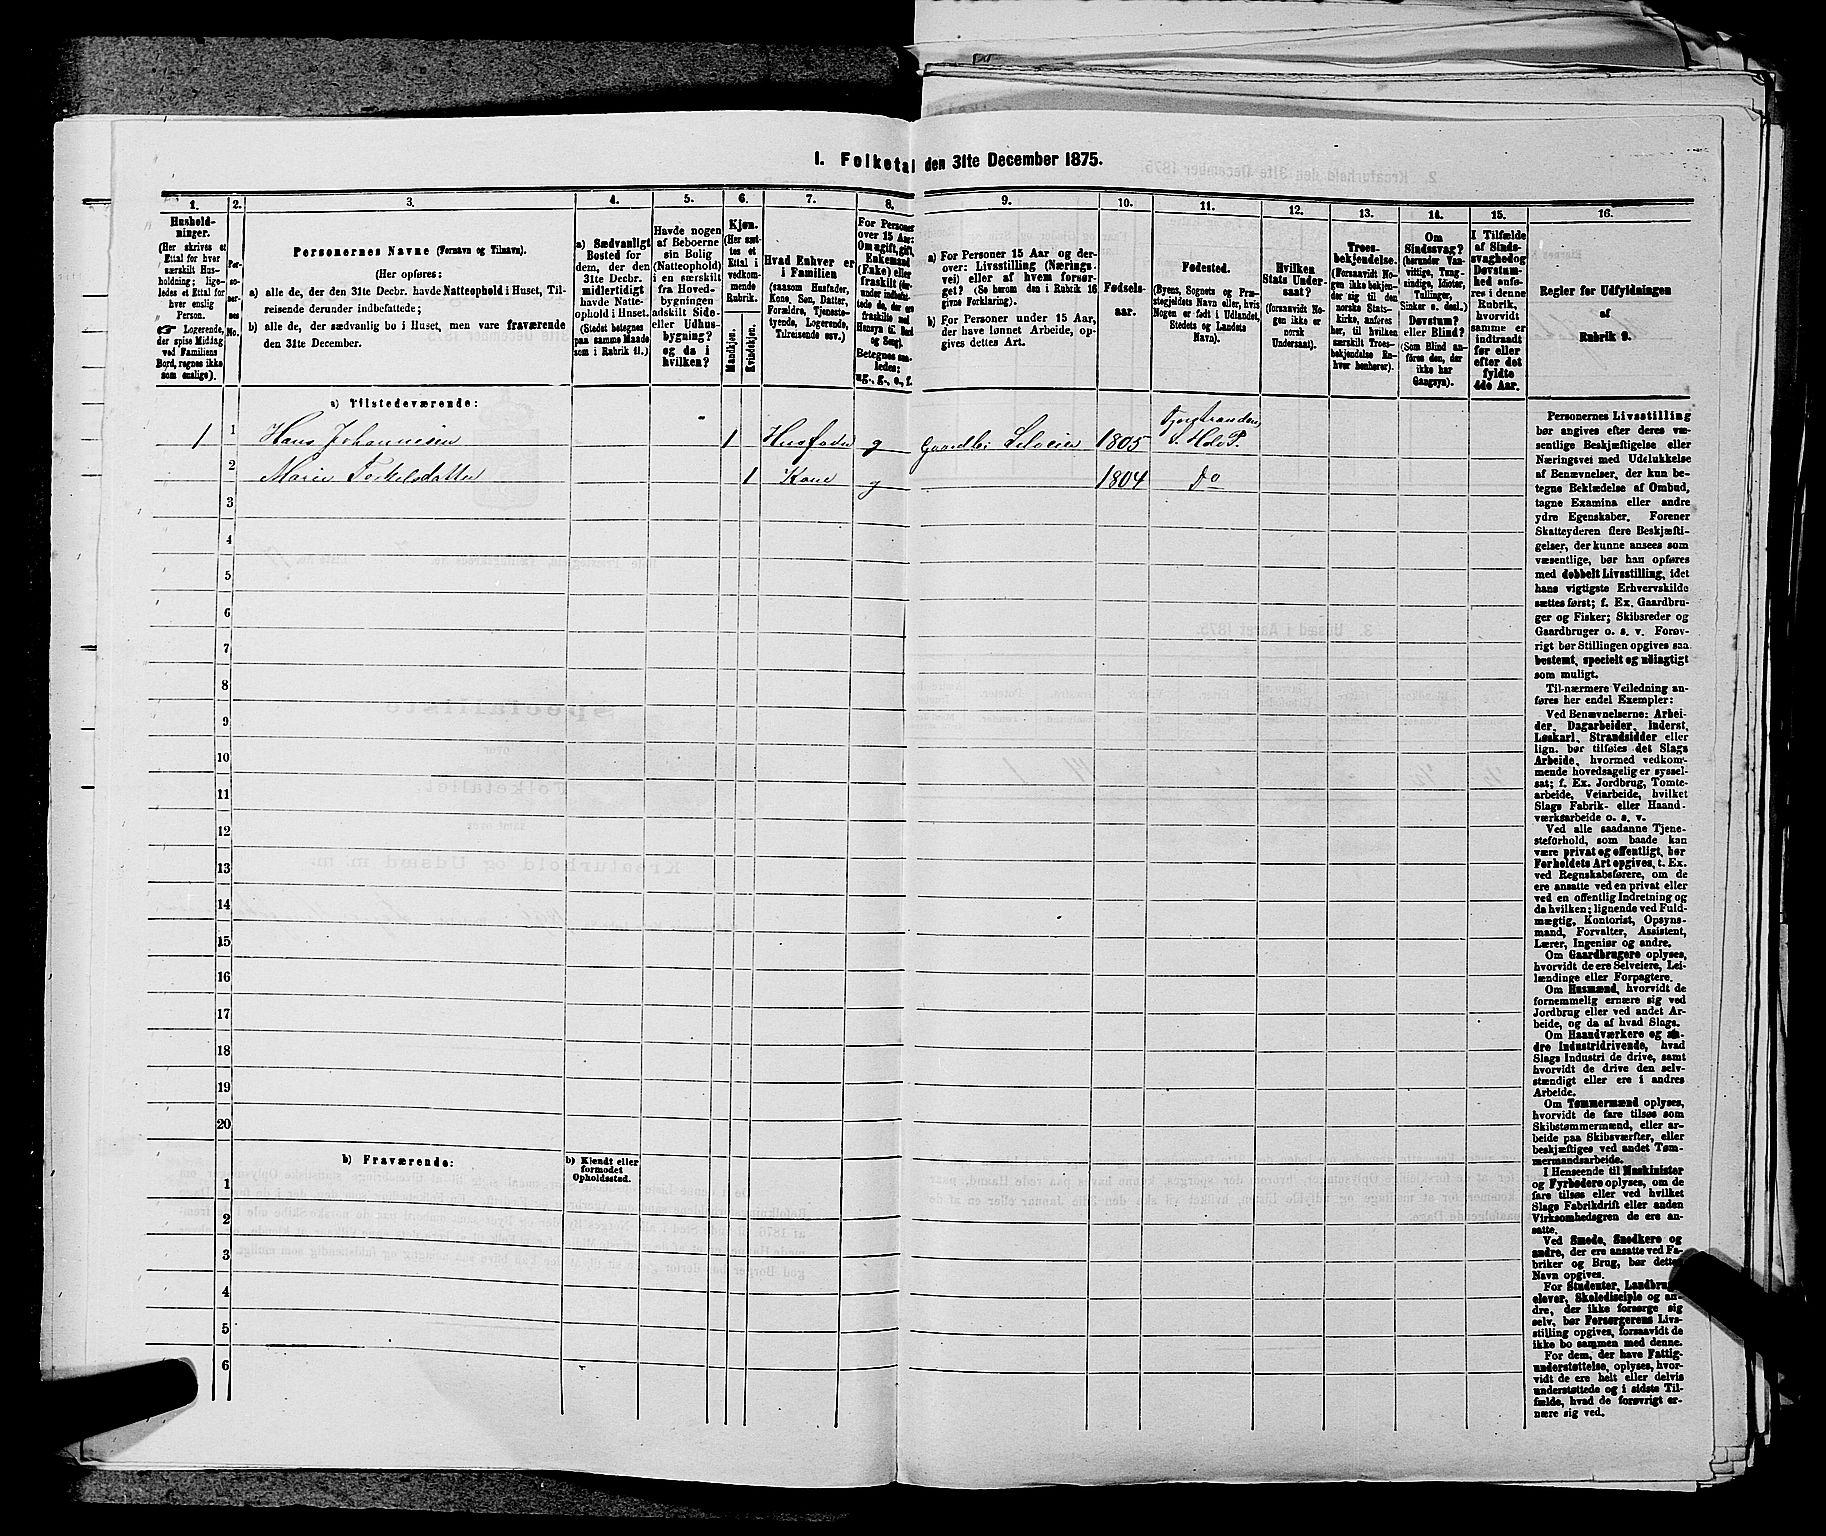 I. Folketal den 31te December 1875.
1.
Hushold-
ninger.
(Her skrives et
Ettal for hver
særskilt Hus-
holdning; lige-
ledes et Ettal for
hver enslig
Person.
☞ Logerende,
der spise Middag
ved Familiens
Bord, regnes ikke
som enslige).
2.
Per-
so-
ner-
nes
No.
3.
Personernes Navne (Fornavn og Tilnavn).
(Her opføres:
a) alle de, der den 31te Decbr. havde Natteophold i Huset, Til-
reisende derunder indbefattede;
b) alle de, der sædvanlig bo i Huset, men vare fraværende
den 31te December.
4.
a) Sædvanligt
Bosted for
dem, der den
31te Decbr.
midlertidigt
havde Natte-
ophold i Huset.
(Stedet betegnes
paa samme Maade
som i Rubrik 11.)
5.
Havde nogen
af Beboerne
sin Bolig
(Natteophold)
i en særskilt
fra Hoved-
bygningen
adskilt Side-
eller Udhus-
bygning?
og da i
hvilken?
6.
Kjøn.
(Her sæt-
tes et
Ettal i
vedkom-
mende
Rubrik.
Mandkjøn.
Kvindekjøn.
7.
Hvad Enhver er
i Familien
(saasom Husfader,
Kone, Søn, Datter,
Forældre, Tjeneste-
tyende, Logerende,
Tilreisende osv.)
8.
For Personer
over 15 Aar:
Om ugift, gift,
Enkemand
(Enke) eller
fraskilt
Betegnes saa-
ledes:
ug., g., e., f.
9.
a) For Personer 15 Aar og der-
over: Livsstilling (Nærings-
vei) eller af hvem forsør-
get? (Se herom den i Rubrik 16
givne Forklaring).
b) For Personer under 15 Aar,
der have lønnet Arbeide, op-
gives dettes Art.
10.
Fødsels-
aar.
11.
Fødested.
(Byens, Sognets og Præ-
stegjeldets Navn eller, hvis
Nogen er født i Udlandet,
Stedets og Landets
Navn).
12.
Hvilken
Stats Under-
saat?
(forsaavidt No-
gen ikke er
norsk
Undersaat).
13.
Troes-
bekjendelse.
(Forsaavidt No-
gen ikke bekjen-
der sig til den
norske Stats-
kirke, anføres
her, til hvilken
særskilt Troes-
bekjendelse En-
hver henhører).
14.
Om
Sindssvag?
(herunder Van-
vittige, Tung-
sindige, Idioter,
Tullinger,
Sinker o. desl.)
Døvstum?
eller Blind?
(Som Blind an-
føres den, der
ikke har
Gangsyn).
15.
I Tilfælde
af Sinds-
svaghed og
Døvstum-
hed anfø-
res i denne
Rubrik,
hvorvidt
samme er
indtraadt
før eller
efter det
fyldte
4de Aar.
16.
Regler for Udfyldningen
af
Rubrik 9.
a) Tilstedeværende:
1 1 Hans Johannesen 1 Husfader g Gaardbr. Selveier 1805 S. Hols P.
2 Marie Torkelsdatter 1 Kone g 1804 Do
3
4
5
6
7
8
9
10
11
12
13
14
15
16
17
18
19
20
b) Fraværende:
b) Kjendt eller
formodet
Opholdssted.
1
2
3
4
5
6
Personernes Livsstilling
bør angives efter deres væ-
sentlige Beskjæftigelse eller
Næringsvei med Udelukkelse
af Benævnelser, der kun be-
tegne Beklædelse af Ombud,
tagne Examina eller andre
ydre Egenskaber. Forener
Skatteyderen flere Beskjæfti-
gelser, der kunne ansees som
væsentlige, bør han opføres
med dobbelt Livsstilling, idet
hans vigtigste Erhvervskilde
sættes først; f. Ex. Gaardbru-
ger og Fisker; Skibsreder og
Gaardbruger o. s. v. Forøv-
rigt bør Stillingen opgives saa
bestemt, specielt og nøiagtigt
som muligt.
Til nærmere Veiledning an-
føres her endel Exempler:
Ved Benævnelserne: Arbei-
der, Dagarbeider, Inderst,
Løskarl, Strandsidder eller
lign. bør tilføies det Slags
Arbeide, hvormed vedkom-
mende hovedsagelig er syssel-
sat; f. Ex. Jordbrug, Tomte-
arbeide, Veiarbeide, hvilket
Slags Fabrik- eller Haand-
værksarbeide o. s. v.
Ved alle saadanne Tjene-
steforhold, som baade kan
være privat og offentligt, bør
Forholdets Art opgives, t. Ex.
ved Regnskabsførere, om de
ere ansatte ved en privat eller
ved en offentlig Indretning og
da hvilken; lignende ved Fuld-
mægtig, Kontorist, Opsyns-
mand, Forvalter, Assistent,
Lærer, Ingeniør og andre.
Om Gaardbrugere oplyses,
hvorvidt de ere Selveiere, Lei-
lændinge eller Forpagtere.
Om Husmænd, hvorvidt de
fornemmelig ernære sig ved
Jordbrug eller ved andet Ar-
beide, og da af hvad Slags.
Om Haandværkere og an-
dre Industridrivende, hvad
Slags Industri de drive, samt
hvorvidt de drive den selv-
stændigt eller ere i andres
Arbeide.
Om Tømmermænd oplyses,
hvorvidt de fare tilsøs som
Skibstømmermænd, eller ar-
beide paa Skibsværfter, eller
beskjæftiges ved andet Tøm-
mermandsarbeide.
I Henseende til Maskinister
og Fyrbødere oplyses, om de
fare tilsøs eller ved hvilket
Slags Fabrikdrift eller anden
Virksomhedsgren de ere an-
satte.
Ved Smede, Snedkere og
andre, der ere ansatte ved Fa-
briker og Brug, bør dettes
Navn opgives.
For Studenter, Landbrugs-
elever, Skoledisciple og an-
dre, der ikke forsørge sig
selv, bør Forsørgerens Livs-
stilling opgives, forsaavidt de
ikke bo sammen med denne.
For dem, der have Fattig-
understøttelse, oplyses, hvor-
vidt de ere helt eller delvis
understøttede og i sidste Til-
fælde, hvad de forøvrigt er-
nære sig ved.